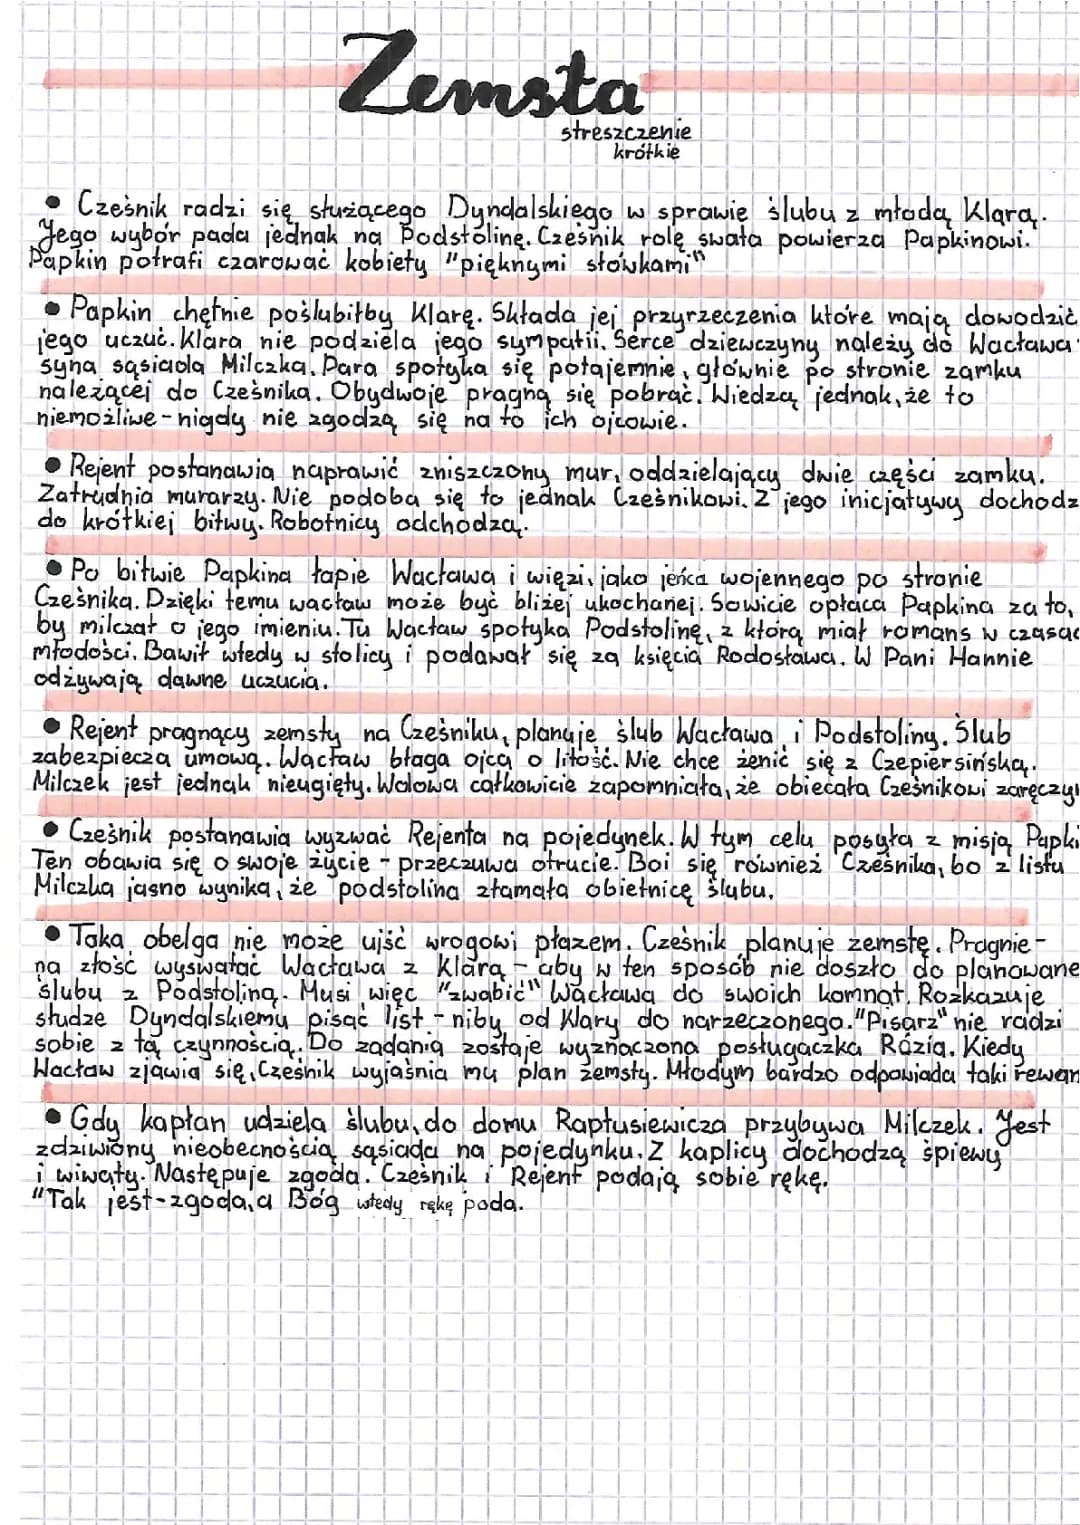 Zemsta
streszczenie
krótkie
• Cześnik radzi się służącego Dyndalskiego w sprawie ślubu z młodą Klarą.
Jego wybór pada jednak na Podstolinę. Cześnik rolę swata powierza Papkinowi.
Papkin potrafi czarować kobiety "pięknymi słówkami"
• Papkin chętnie poślubiłby Klarę. Składa jej przyrzeczenia które mają dowodzić
jego uczuć. Klara nie podziela jego sympatii. Serce dziewczyny należy do Wacława
syna sąsiada Milczka. Para spotyka się potajemnie, głównie po stronie zamku
należącej do Cześnika. Obydwoje pragną się pobrać. Wiedzą jednak, że to
niemożliwe - nigdy nie zgodzą się na to ich ojcowie.
• Rejent postanawia naprawić zniszczony mur, oddzielający dwie części zamku.
Zatrudnia murarzy. Nie podoba się to jednak Cześnikowi. Z jego inicjatywy dochodz
do krótkiej bitwy. Robotnicy odchodzą.
• Po bitwie Papkina łapie Wacława i więzi, jako jeńca wojennego po stronie
Cześnika. Dzięki temu wacław może być bliżej ukochanej. Sowicie opłaca Papkina za to,
by milczał o jego imieniu. Tu Wacław spotyka Podstolinę, z którą miał romans w czasac
młodości. Bawił wtedy w stolicy i podawał się za księcia Rodosława. W Pani Hannie
odżywają dawne uczucia.
• Rejent pragnący zemsty na Cześniku, planuje ślub Wacława i Podstoliny. Ślub
zabezpiecza umową. Wacław błaga ojca o litość. Nie chce żenić się z Czepiersińską.
Milczek jest jednak nieugięty. Wdowa całkowicie zapomniała, że obiecała Cześnikowi zaręczyn
• Cześnik postanawia wyzwać Rejenta na pojedynek. W tym celu posyła z misją Papki
Ten obawia się o swoje życie - przeczuwa otrucie. Boi się również Cześnika, bo z listu
Milczka jasno wynika, że podstolina złamała obietnicę ślubu.
• Taka obelga nie może ujść wrogowi płazem. Cześnik planuje zemstę. Pragnie -
na złość wyswatać Wacława z Klarą - aby w ten sposób nie doszło do planowane
ślubu z Podstoliną. Musi więc "zwabić" Wacława do swoich komnat. Rozkazuje
słudze Dyndalskiemu pisać list - niby od Klary do narzeczonego. "Pisarz" nie radzi
sobie z tą czynnością. Do zadania zostaje wyznaczona posługaczka Rózia. Kiedy
Wacław zjawia się, Cześnik wyjaśnia mu plan zemsty. Młodym bardzo odpowiada taki rewan
• Gdy kapłan udziela ślubu, do domu Raptusiewicza przybywa Milczek. Jest
zdziwiony nieobecnością sąsiada na pojedynku. Z kaplicy dochodzą śpiewy
i wiwaty. Następuje zgoda. Cześnik i Rejent podają sobie rękę.
"Tak jest - zgoda, a Bóg wtedy rękę poda.